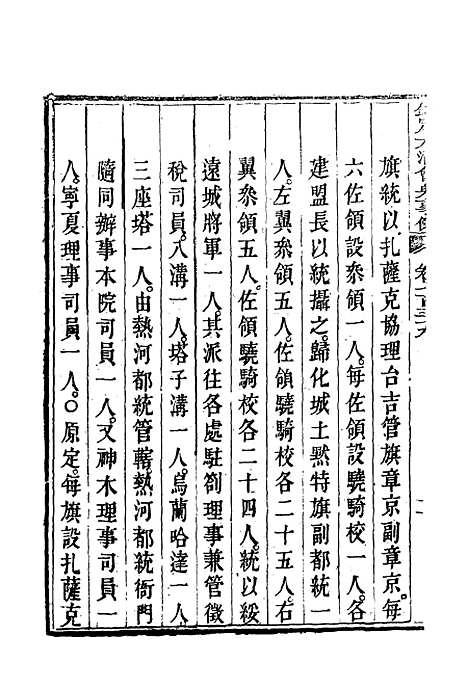 欽定大清會典事例 卷一百三十九
旗統以扎薩克協理台吉管旗章京副章京。每
六佐領設叅領一人。每佐領設驍騎校一人。各
建盟長以統攝之。歸化城土黙特旗副都統一
人。左翼叅領五人。佐領驍騎校各二十五人。右
翼叅領五人。佐領驍騎校各二十四人。統以綏
遠城將軍一人。其派往各處駐劄理事兼管徵
稅司員。八溝一人。塔子溝一人。烏蘭哈達一人。
三座塔一人。由熱河都統管轄熱河都統衙門
隨同辦事本院司員一人。又神木理事司員一
人。寧夏理事司員一人。〇原定。每旗設扎薩克